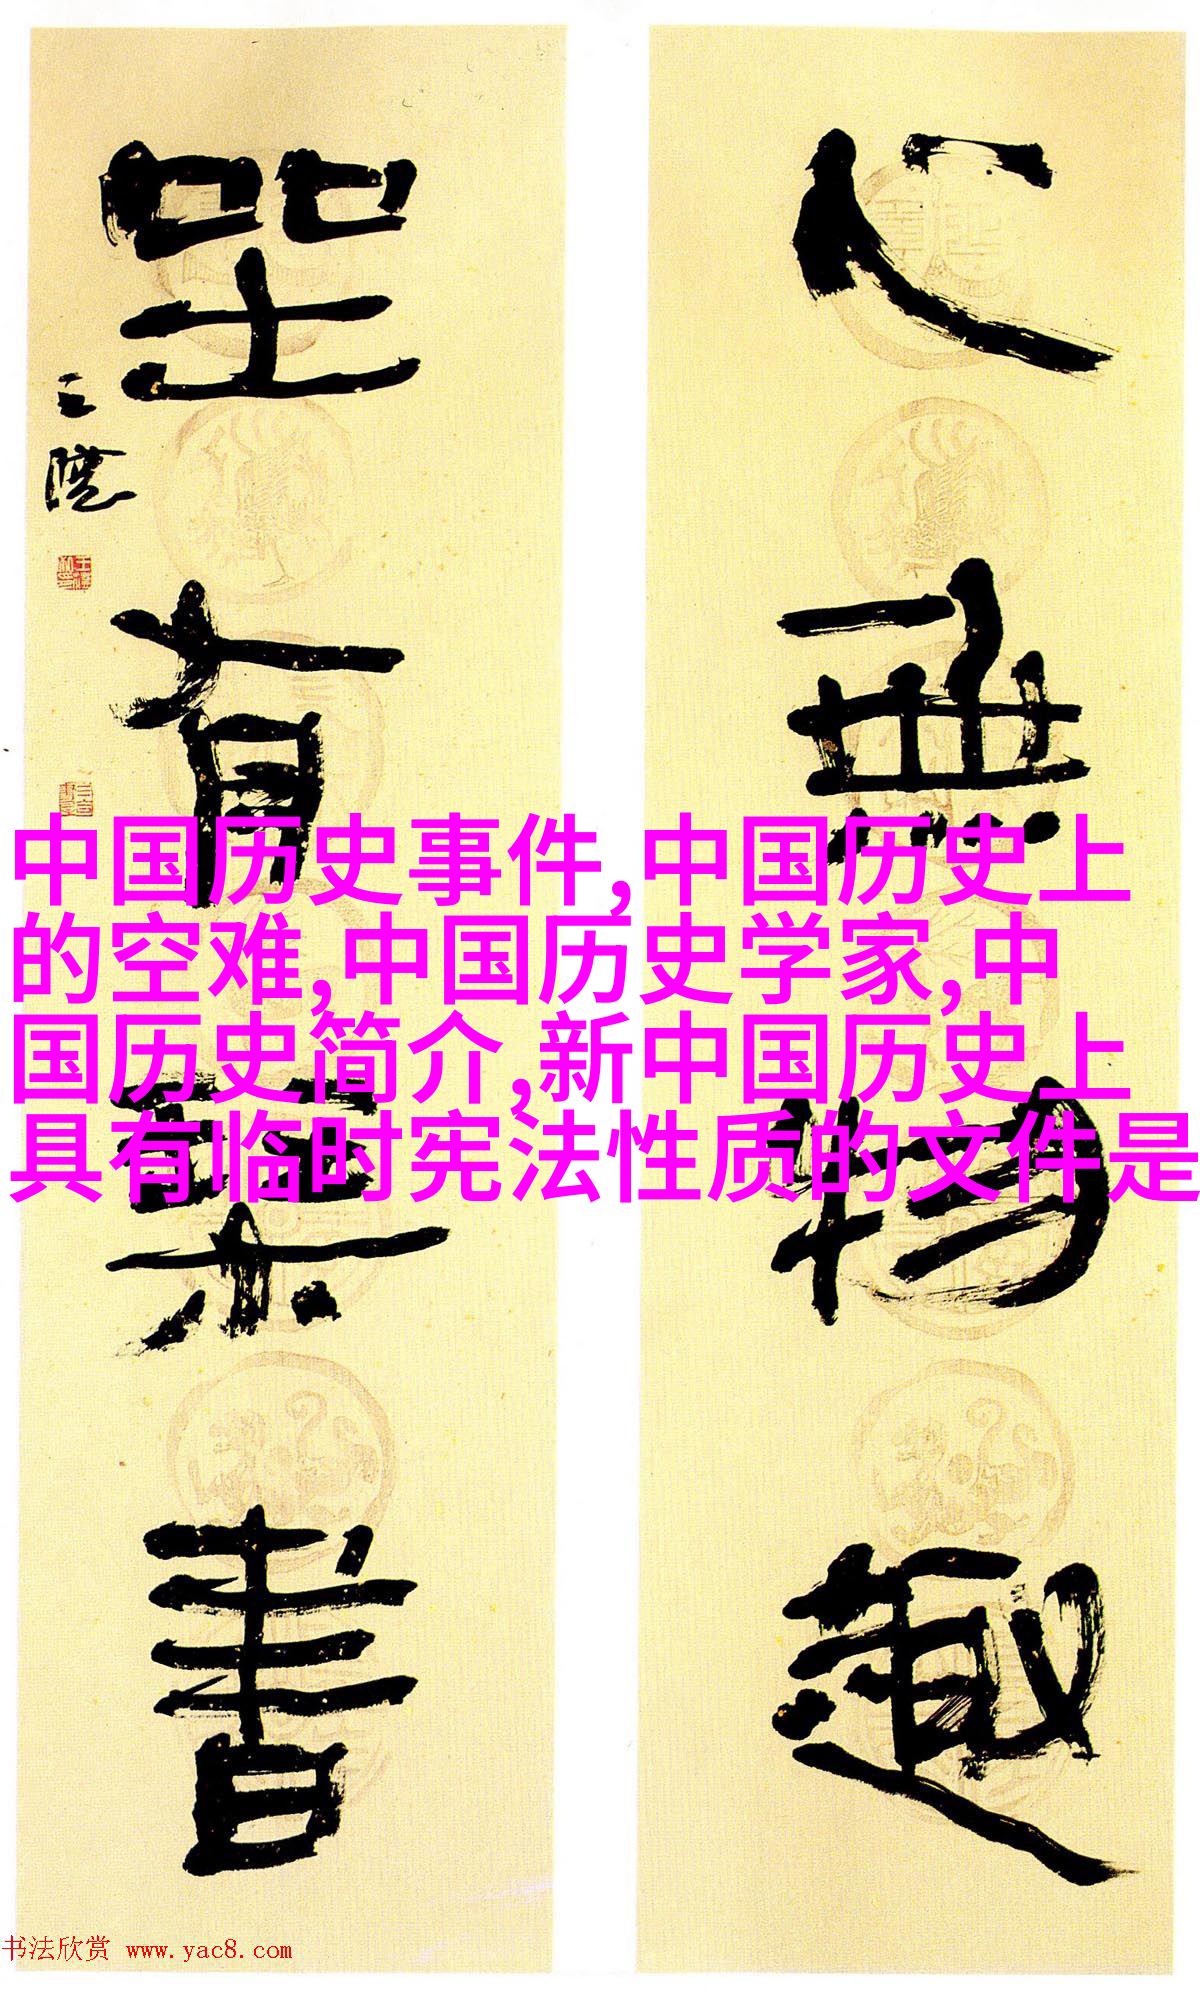 心無物趣
坐有琴書
中国历史事件,中国历史上
的空难,中国历史学家,中
国历史简介,新中国历史上
具有临时宪法性质的文件是
书法欣赏 www.yac8.com